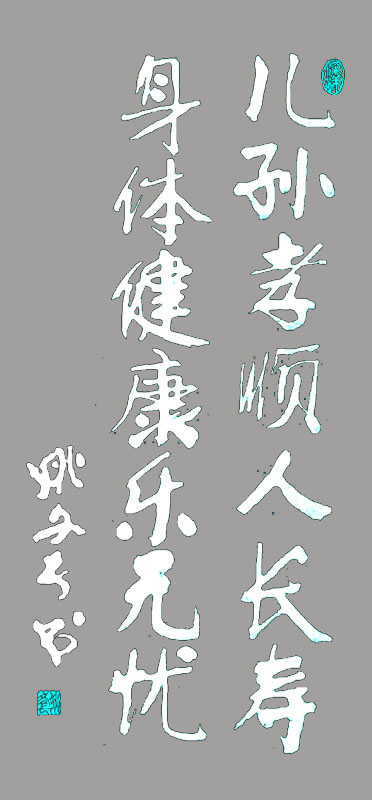 儿孙孝顺人长寿
身体健康乐无忧